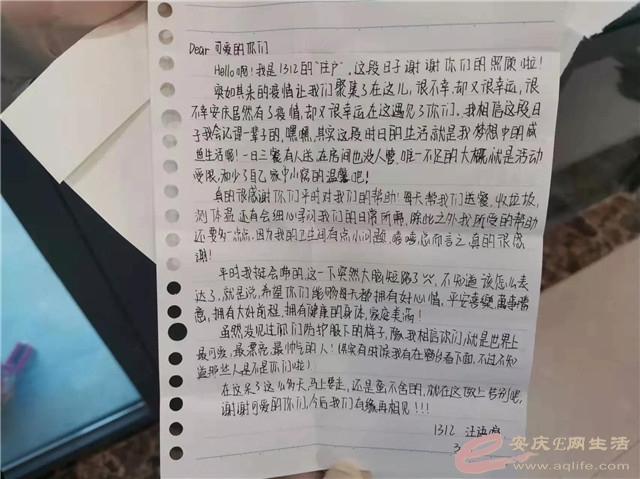 Dear 可爱的你们
Hello啊！我是1312的"住户"，这段日子谢谢你们的照顾啦！
突如其来的疫情让我们聚集了在这儿，很不幸却又很幸运，很
不幸安庆居然有了疫情，却又很幸运在这遇见了你们。我相信这段日
子我会记得一辈子的，嘿嘿，其实这段时日的生活就是我梦想中的咸
鱼生活啊！一日三餐有人送，在房间也没人管，唯一不足的大概就是活动
受限，而少了自己家中小窝的温馨吧！
真的很感谢你们平时对我们的帮助！每天帮我们送餐，收垃圾，
测体温还有会细心寻问我们的日常所需，除此之外我所受的帮助
还要多一点点，因为我的卫生间有点小问题，嘻嘻，总而言之真的很感
谢！
平时我挺会唠的，这一下突然大脑短路了，不知道该怎么表
达了，就是说，希望你们能够每天都拥有好心情，平安喜乐，万事如
意，拥有大好前程，拥有健康的身体，家庭美满！
虽然没见过你们防护服下的样子，但我相信你们就是世界上
最可爱，最漂亮，最帅气的人！（其实有时候我有在窗台看下面，不过不知
道那些人是不是你们啦）
在这呆了这么多天，马上要走，还是蛮不舍的，就在这纸上告别吧，
谢谢可爱的你们，今后我们有缘再相见！！！
1312 汪
3
安庆E网生活
www.aqlife.com